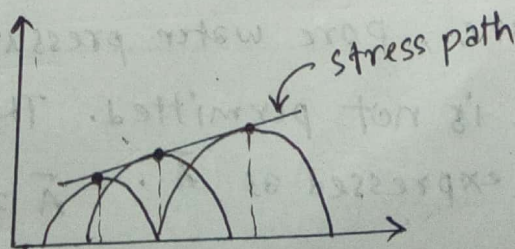 stress path